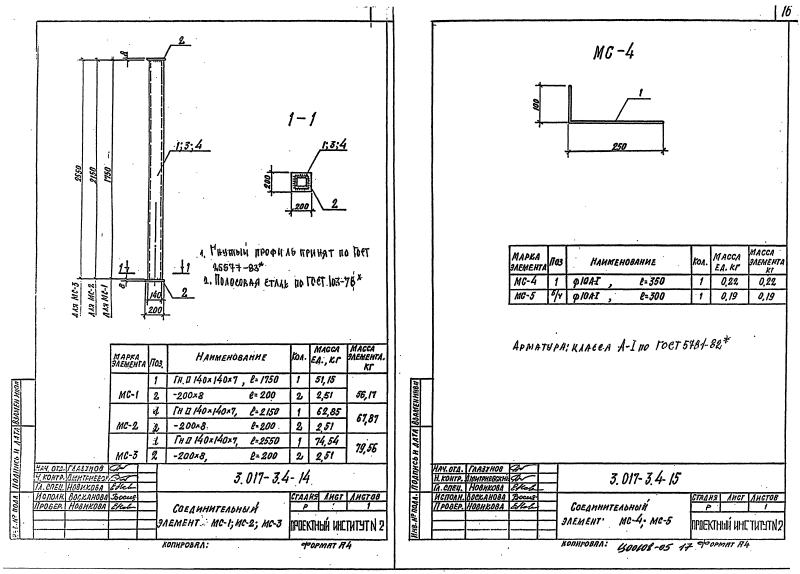 16
2
8
1;3;4
2550
2150
1750
для МС-3
для МС-2
для МС-1
1
1
8
2
140
200
1-1
1;3;4
200
2
200
1. Гнутый профиль принят по ГОСТ
25577-83*
2. Полосовая сталь по ГОСТ 103-76*
МАРКА ЭЛЕМЕНТА Поз. Наименование Кол. МАССА ЕД., КГ МАССА ЭЛЕМЕНТА. КГ
МС-1 1 Гн.□ 140×140×7, ℓ=1750 1 51,15 56,17
2 -200×8 ℓ=200 2 2,51
МС-2 1 Гн.□ 140×140×7, ℓ=2150 1 62,85 67,87
2 -200×8. ℓ=200 2 2,51
МС-3 1 Гн□ 140×140×7, ℓ=2550 1 74,54 79,56
2 -200×8, ℓ=200 2 2,51
НАЧ. ОТД. ГЛАЗУНОВ
Н. КОНТР.
ГЛ. СПЕЦ. НОВИКОВА
ИСПОЛН. ВОСКАНОВА
ПРОВЕР. НОВИКОВА
3.017-3.4-14
СОЕДИНИТЕЛЬНЫЙ
ЭЛЕМЕНТ МС-1; МС-2; МС-3
СТАДИЯ ЛИСТ ЛИСТОВ
Р 1
ПРОЕКТНЫЙ ИНСТИТУТ N2
КОПИРОВАЛ: ФОРМАТ А4
ПОДПИСЬ И ДАТА
МС-4
100
1
250
МАРКА ЭЛЕМЕНТА Поз НАИМЕНОВАНИЕ Кол. МАССА ЕД. КГ МАССА ЭЛЕМЕНТА КГ
МС-4 1 ф10А-I, ℓ=350 1 0,22 0,22
МС-5 б/ч ф10А-I, ℓ=300 1 0,19 0,19
АРМАТУРА: КЛАССА А-I по ГОСТ 5781-82*
НАЧ. ОТД. ГЛАЗУНОВ
Н. КОНТР.
ГЛ. СПЕЦ. НОВИКОВА
ИСПОЛН. ВОСКАНОВА
ПРОВЕР. НОВИКОВА
3.017-3.4-15
СОЕДИНИТЕЛЬНЫЙ
ЭЛЕМЕНТ МС-4, МС-5
СТАДИЯ ЛИСТ ЛИСТОВ
Р 1
ПРОЕКТНЫЙ ИНСТИТУТ N2
КОПИРОВАЛ: Ц00608-05 17 ФОРМАТ А4
ИНВ. № ПОДЛ. ПОДПИСЬ И ДАТА